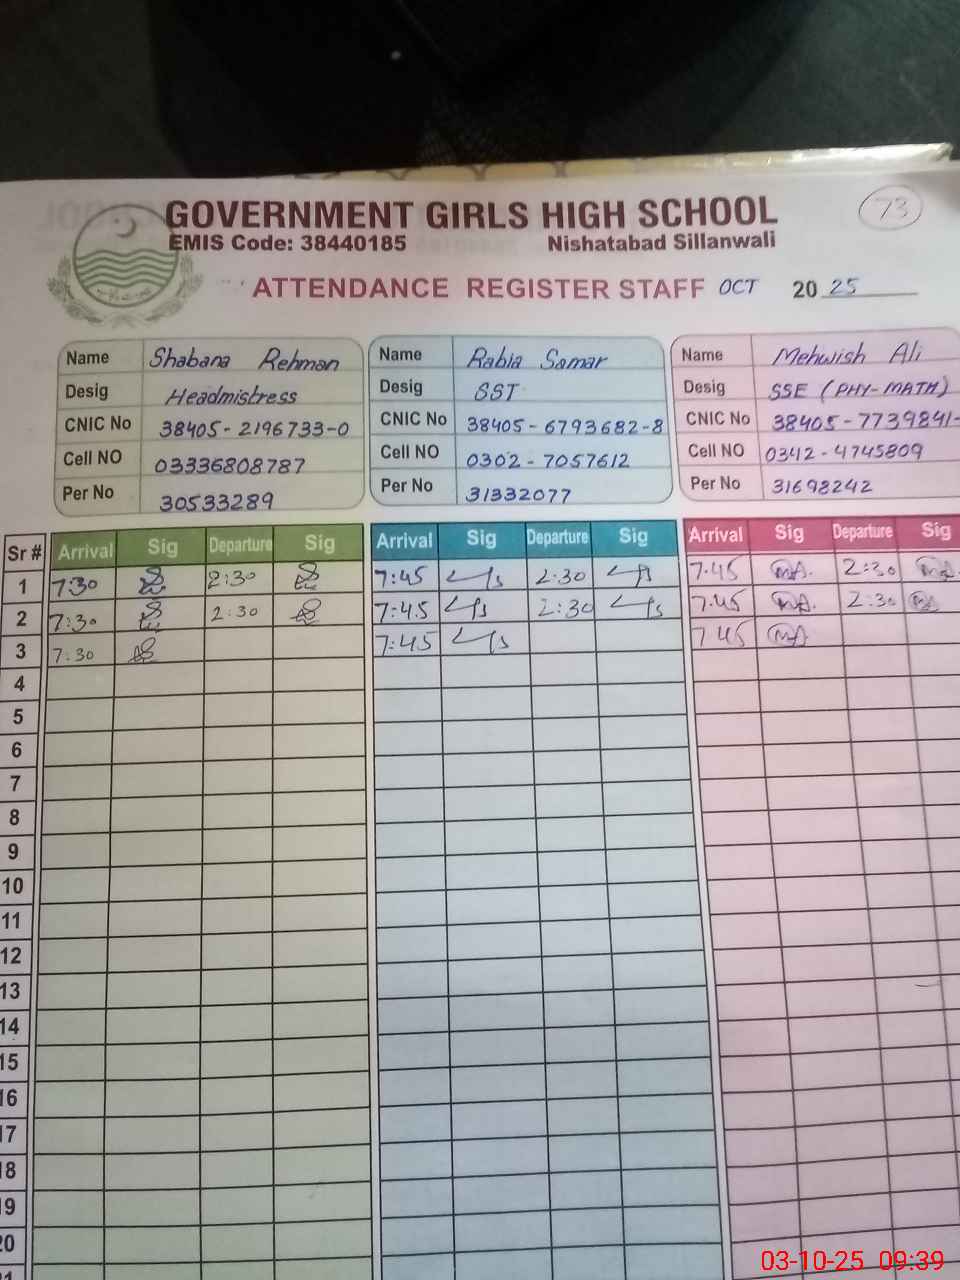 GOVERNMENT GIRLS HIGH SCHOOL 73
EMIS Code: 38440185 Nishatabad Sillanwali
ATTENDANCE REGISTER STAFF OCT 2025
Name Shabana Rehman Name Rabia Samar Name Mehwish Ali
Desig Headmistress Desig SST Desig SSE (PHY-MATH)
CNIC No 38405-2196733-0 CNIC No 38405-6793682-8 CNIC No 38405-7739841-
Cell NO 03336808787 Cell NO 0302-7057612 Cell NO 0342-4745809
Per No 30533289 Per No 31332077 Per No 31698242
Sr # Arrival Sig Departure Sig Arrival Sig Departure Sig Arrival Sig Departure Sig
1 7:30 2:30 7:45 2:30 7.45 2:30
2 7:30 2:30 7:45 2:30 7.45 2:30
3 7:30 7:45 7 45
4
5
6
7
8
9
10
11
12
13
14
15
16
17
18
19
20
21
03-10-25 09:39